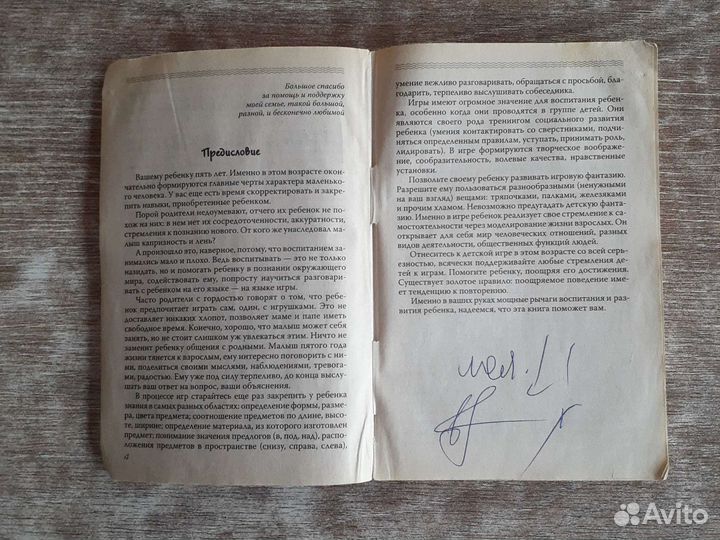 Большое спасибо
за помощь и поддержку
моей семье, такой большой,
разной, и бесконечно любимой
Предисловие
Вашему ребенку пять лет. Именно в этом возрасте окон-
чательно формируются главные черты характера маленько-
го человека. У вас еще есть время скорректировать и закре-
пить навыки, приобретенные ребенком.
Порой родители недоумевают, отчего их ребенок не по-
хож на них: в нем нет их сосредоточенности, аккуратности,
стремления к познанию нового. От кого же унаследовал
малыш капризность и лень?
А произошло это, наверное, потому, что воспитанием за-
нимались мало и плохо. Ведь воспитывать — это не только
назидать, но и помогать ребенку в познании окружающего
мира, содействовать ему, попросту научиться разговари-
вать с ребенком на его языке — на языке игры.
Часто родители с гордостью говорят о том, что ребе-
нок предпочитает играть сам, один, с игрушками. Это не
доставляет никаких хлопот, позволяет маме и папе иметь
свободное время. Конечно, хорошо, что малыш может себя
занять, но не стоит слишком уж увлекаться этим. Ничто не
заменит ребенку общения с родными. Малыш пятого года
жизни тянется к взрослым, ему интересно поговорить с ни-
ми, поделиться своими мыслями, наблюдениями, тревога-
ми, радостью. Ему уже под силу терпеливо, до конца выслу-
шать ваш ответ на вопрос, ваши объяснения.
В процессе игр старайтесь еще раз закрепить у ребенка
знания в самых разных областях: определение формы, разме-
ра, цвета предмета; соотношение предметов по длине, высо-
те, ширине; определение материала, из которого изготовлен
предмет; понимание значения предлогов (в, под, над), распо-
ложения предметов в пространстве (снизу, справа, слева),
4
умение вежливо разговаривать, обращаться с просьбой, бла-
годарить, терпеливо выслушивать собеседника.
Игры имеют огромное значение для воспитания ребен-
ка, особенно когда они проводятся в группе детей. Они
являются своего рода тренингом социального развития
ребенка (умения контактировать со сверстниками, подчи-
няться определенным правилам, уступать, принимать роль,
лидировать). В игре формируются творческое воображе-
ние, сообразительность, волевые качества, нравственные
установки.
Позвольте своему ребенку развивать игровую фантазию.
Разрешите ему пользоваться разнообразными (ненужными
на ваш взгляд) вещами: тряпочками, палками, железками
и прочим хламом. Невозможно предугадать детскую фанта-
зию. Именно в игре ребенок реализует свое стремление к са-
мостоятельности через моделирование жизни взрослых. Он
открывает для себя мир человеческих отношений, разных
видов деятельности, общественных функций людей.
Отнеситесь к детской игре в этом возрасте со всей серь-
езностью, всячески поддерживайте любые стремления де-
тей к играм. Помогите ребенку, поощряя его достижения.
Существует золотое правило: поощряемое поведение име-
ет тенденцию к повторению.
Именно в ваших руках мощные рычаги воспитания и раз-
вития ребенка, надеемся, что эта книга поможет вам.
Avito